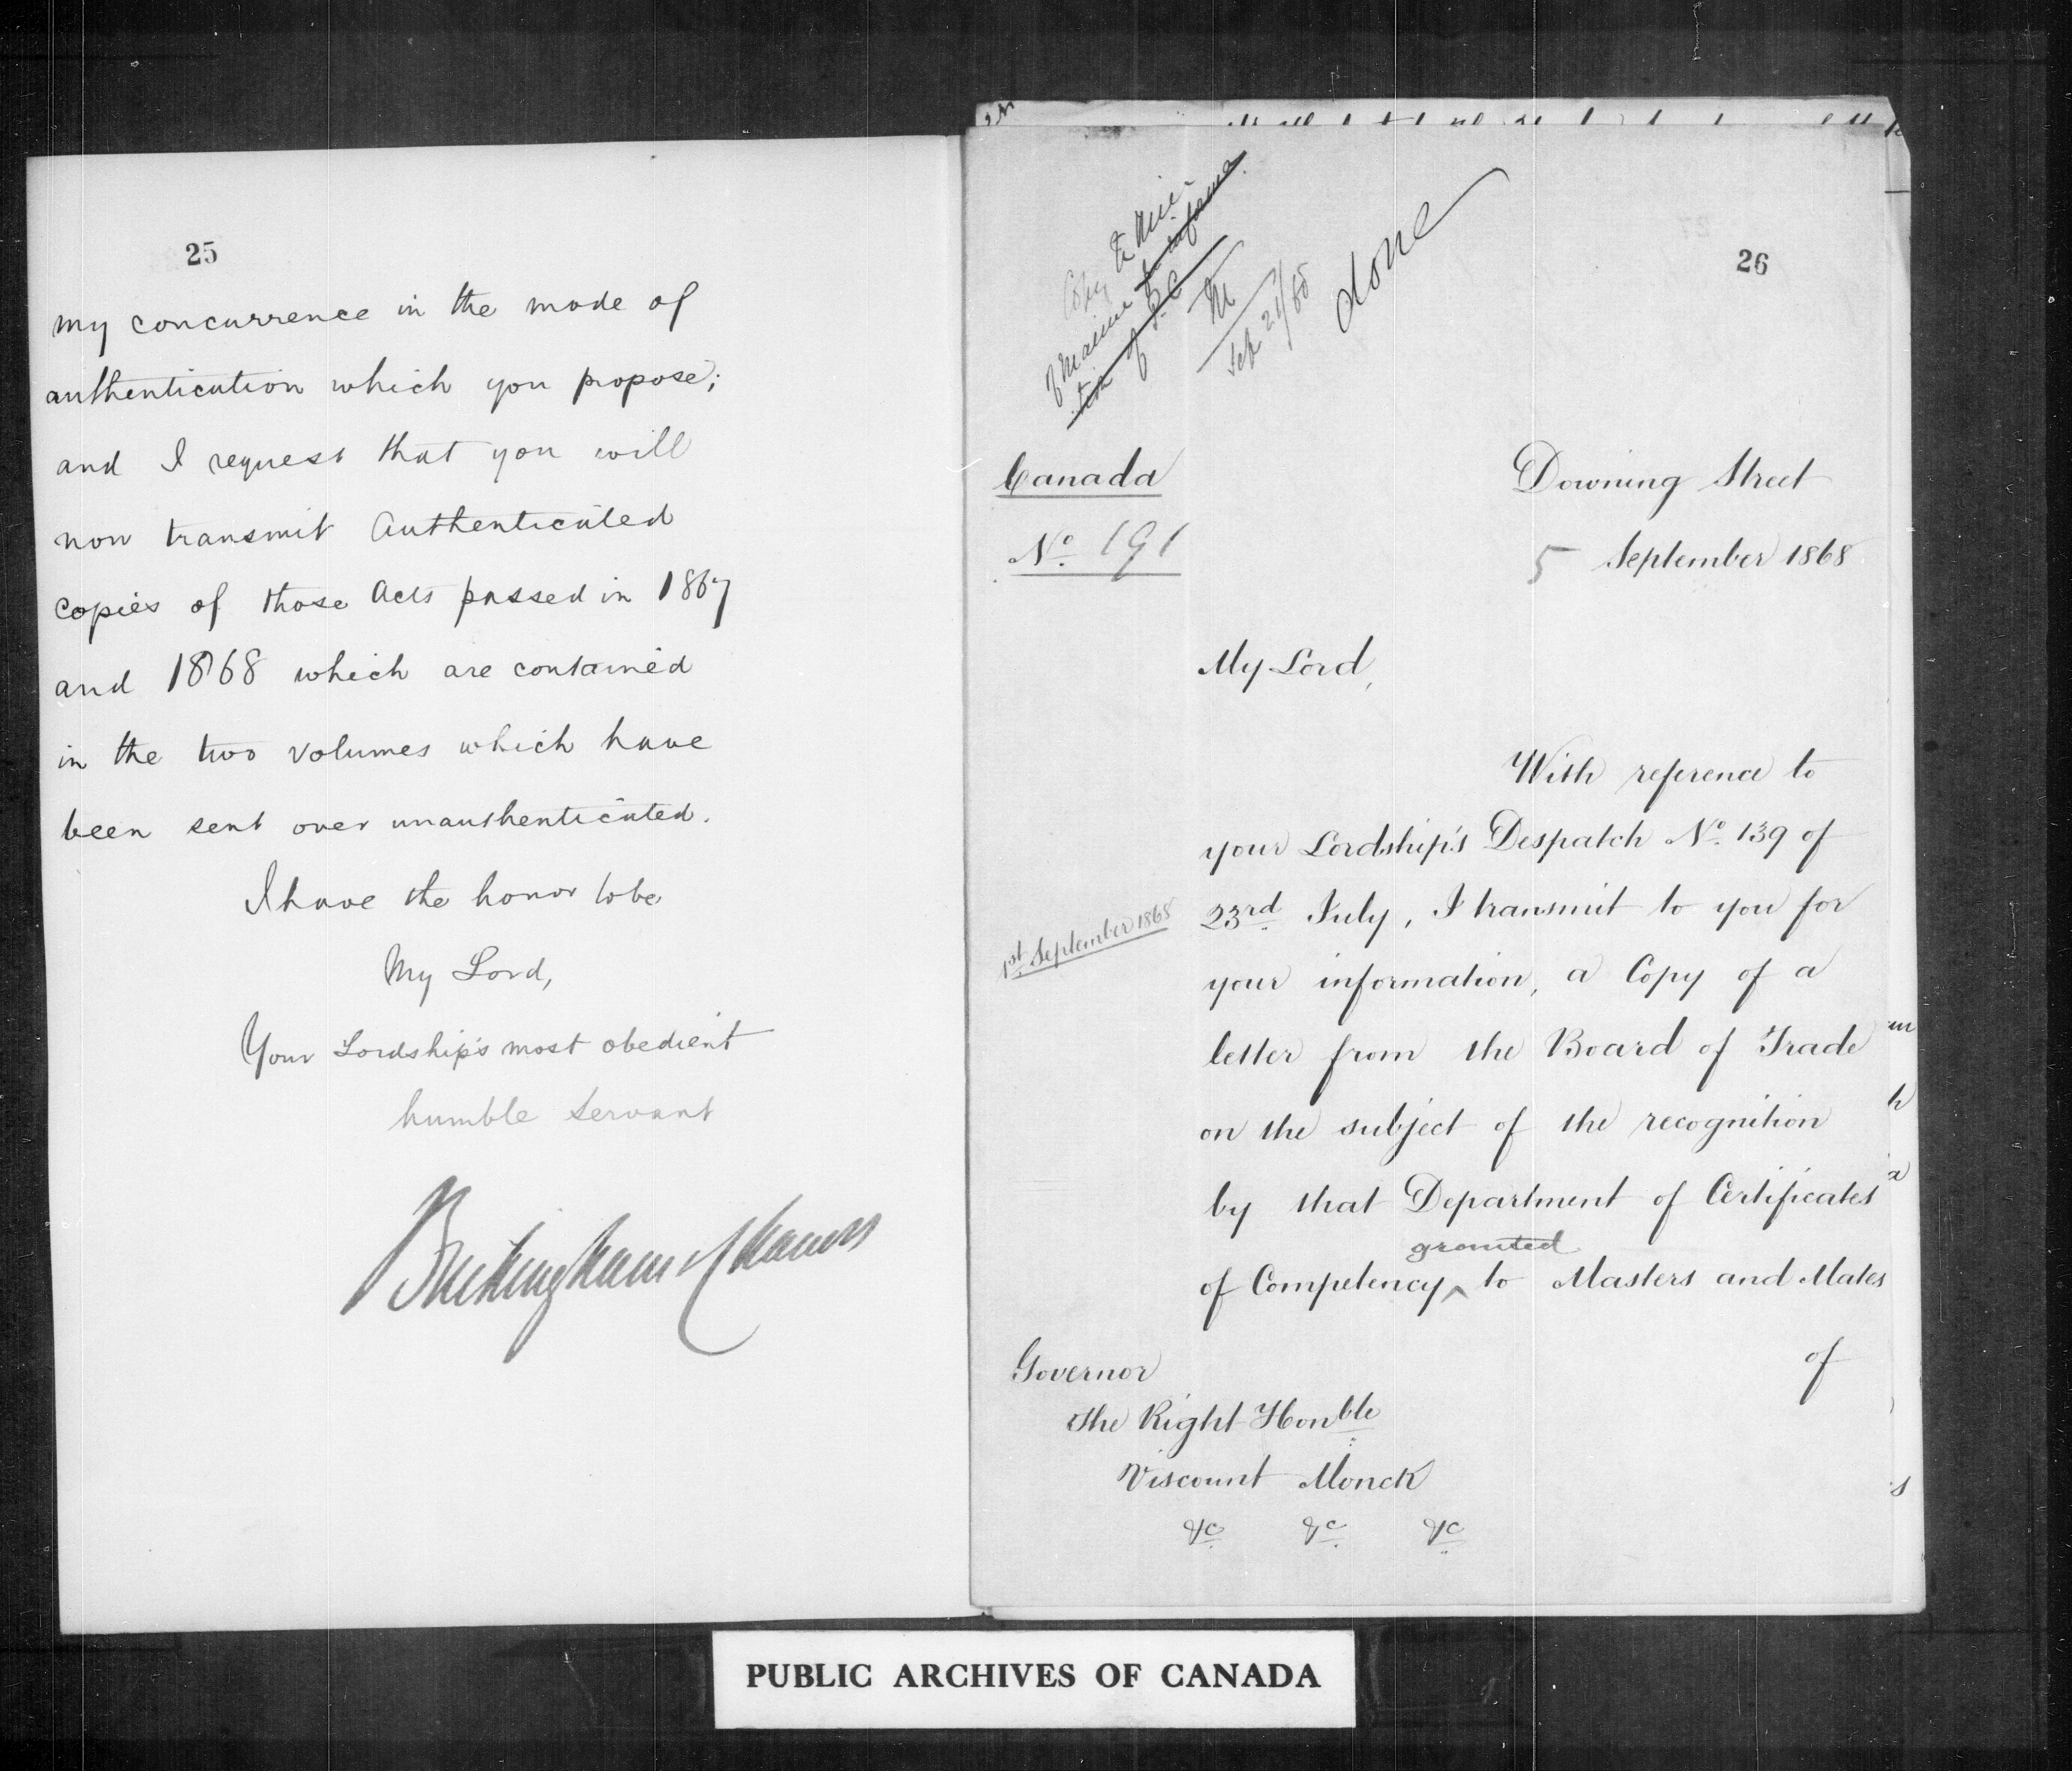 25
my concurrence in the mode of
authentication which you propose;
and I request that you will
now transmit authenticated
copies of those Acts passed in 1867
and 1868 which are contained
in the two volumes which have
been sent over unauthenticated.
I have the honor to be
My Lord,
Your Lordship's most obedient
humble servant
Buckingham & Chandos
26
Copy to Min
of Marine for informa
tion of P.C
M
Sep 21/68
done
Canada
No. 191
Downing Street
5 September 1868
My Lord,
With reference to
your Lordship's Despatch No. 139 of
23rd July, I transmit to you for
1st September 1868
your information, a Copy of a
letter from the Board of Trade
on the subject of the recognition
by that Department of Certificates
granted
of Competency ^ to Masters and Mates
of
Governor
The Right Honble
Viscount Monck
&c &c &c
PUBLIC ARCHIVES OF CANADA